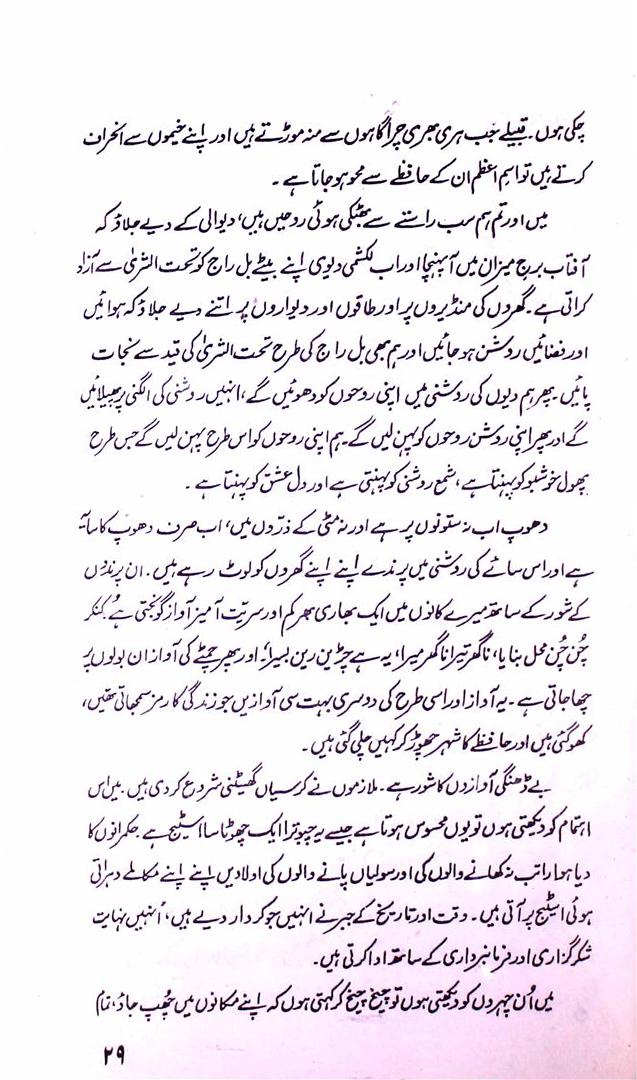 چکی ہوں۔ قبیلے جب ہری بھری چراگاہوں سے منہ موڑتے ہیں اور اپنے خیموں سے انحراف
کرتے ہیں تو اسمِ اعظم ان کے حافظے سے محو ہو جاتا ہے۔
میں اور تم ہم سب راستے سے بھٹکی ہوئی روحیں ہیں، دیوالی کے دیے جلاؤ کہ
آفتاب برجِ میزان میں آ پہنچا اور اب لکشمی دیوی اپنے بیٹے بل راج کو تحت الثریٰ سے آزاد
کراتی ہے۔ گھروں کی منڈیروں پر اور طاقوں اور دیواروں پر اتنے دیے جلاؤ کہ ہوائیں
اور فضائیں روشن ہو جائیں اور ہم بھی بل راج کی طرح تحت الثریٰ کی قید سے نجات
پائیں۔ پھر ہم دیوں کی روشنی میں اپنی روحوں کو دھوئیں گے، انہیں روشنی کی الگنی پر پھیلائیں
گے اور پھر اپنی روشن روحوں کو پہن لیں گے۔ ہم اپنی روحوں کو اس طرح پہن لیں گے جس طرح
پھول خوشبو کو پہنتا ہے، شمع روشنی کو پہنتی ہے اور دل عشق کو پہنتا ہے۔
دھوپ اب نہ ستونوں پر ہے اور نہ مٹی کے ذرّوں میں، اب صرف دھوپ کا سایہ
ہے اور اس سائے کی روشنی میں پرندے اپنے اپنے گھروں کو لوٹ رہے ہیں۔ ان پرندوں
کے شور کے ساتھ میرے کانوں میں ایک بھاری بھر کم اور سریت آمیز آواز گونجتی ہے 'کنکر
چُن چُن محل بنایا، نا گھر تیرا نا گھر میرا، یہ ہے چڑین رین بسیرا' اور پھر چمٹے کی آواز ان بولوں پر
چھا جاتی ہے۔ یہ آواز اور اسی طرح کی دوسری بہت سی آوازیں جو زندگی کا رمز سمجھاتی تھیں،
کھو گئی ہیں اور حافظے کا شہر چھوڑ کر کہیں چلی گئی ہیں۔
بے ڈھنگی آوازوں کا شور ہے۔ ملازموں نے کرسیاں گھسیٹنی شروع کر دی ہیں۔ میں اس
اہتمام کو دیکھتی ہوں تو یوں محسوس ہوتا ہے جیسے یہ چبوترا ایک چھوٹا سا اسٹیج ہے۔ حکمرانوں کا
دیا ہوا راتب نہ کھانے والوں کی اور سولیاں پانے والوں کی اولادیں اپنے اپنے مکالمے دہراتی
ہوئی اسٹیج پر آتی ہیں۔ وقت اور تاریخ کے جبر نے انہیں جو کردار دیے ہیں، اُنہیں نہایت
شکر گزاری اور فرمانبرداری کے ساتھ ادا کرتی ہیں۔
میں اُن چہروں کو دیکھتی ہوں تو چیخ چیخ کر کہتی ہوں کہ اپنے مکانوں میں چُھپ جاؤ، تمام
۲۹